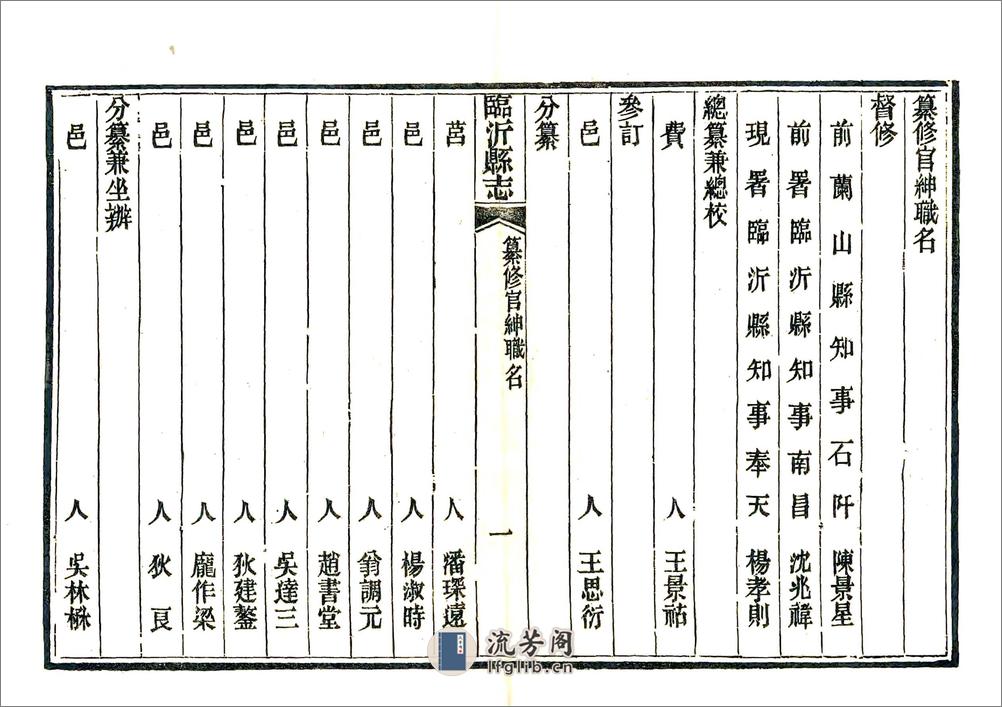 纂修官紳職名
督修
前蘭山縣知事石阡陳景星
前署臨沂縣知事南昌沈兆禕
現署臨沂縣知事奉天楊孝則
總纂兼總校
費人王景祜
參訂
邑人王思衍
分纂
臨沂縣志 纂修官紳職名 一
莒人潘琛遠
邑人楊淑時
邑人翁調元
邑人趙書堂
邑人吳達三
邑人狄建鏊
邑人龐作梁
邑人狄艮
分纂兼坐辦
邑人吳林
流芳阁
lfglib.cn